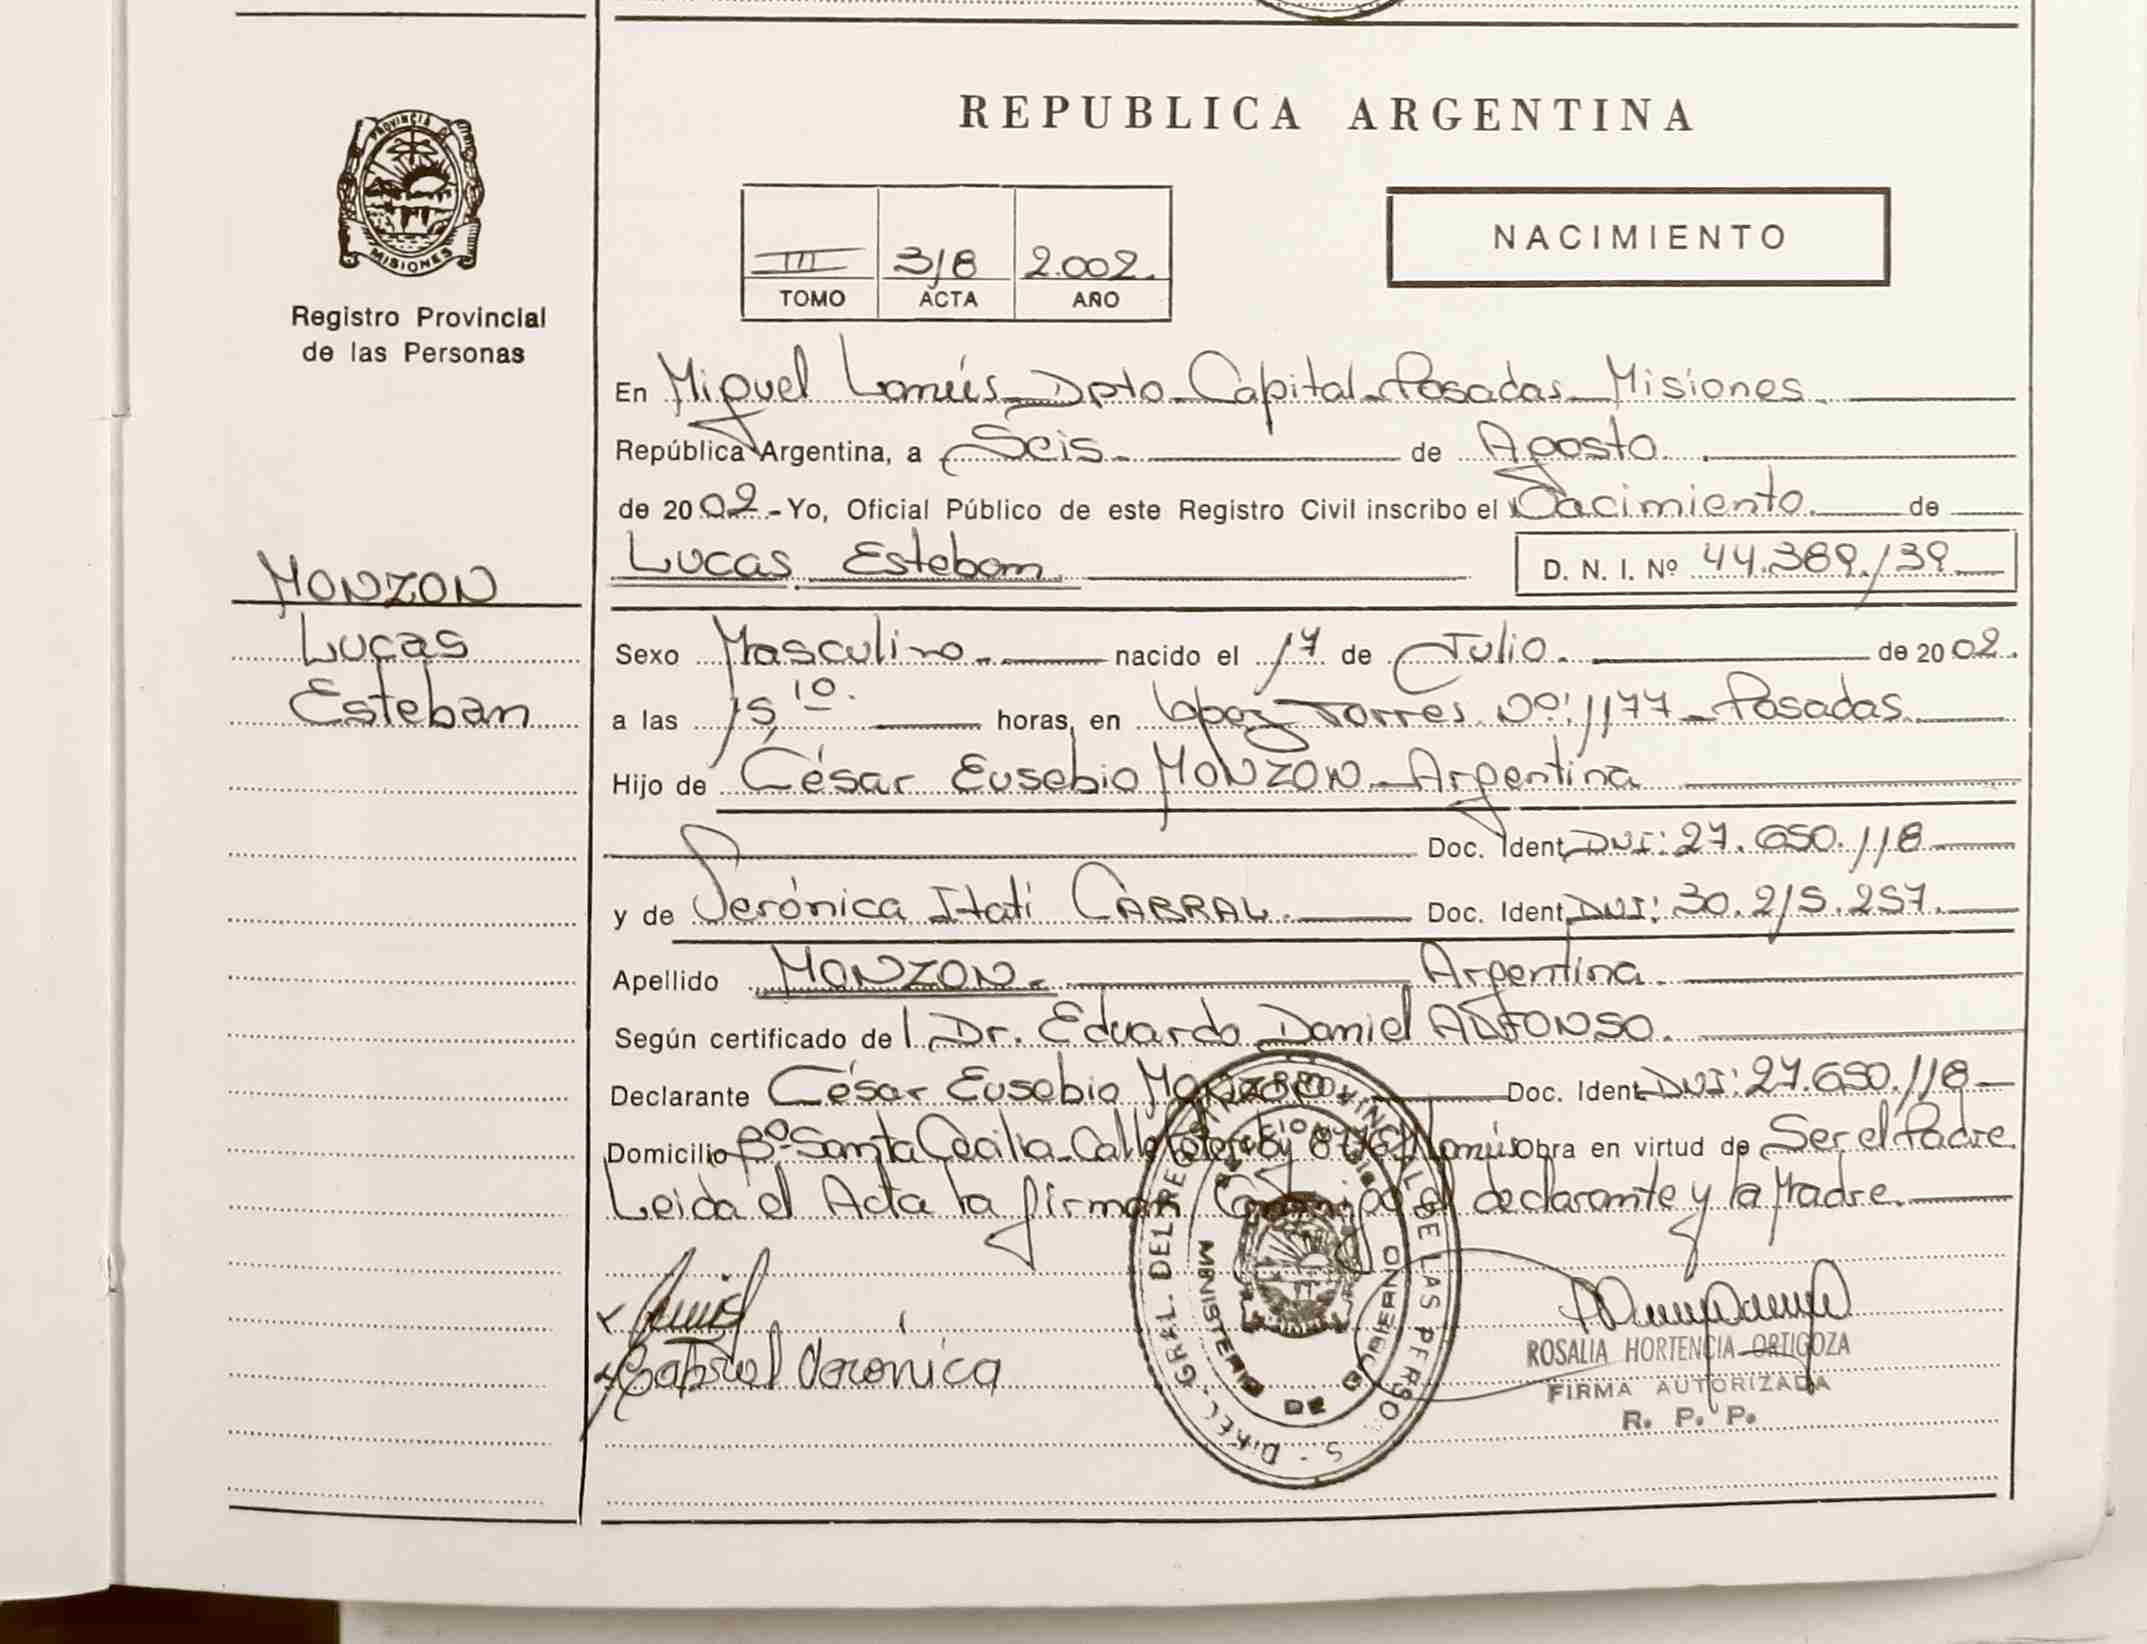 REPUBLICA ARGENTINA
PROVINCIA DE
MISIONES
Registro Provincial
de las Personas
NACIMIENTO
III 318 2.002.
TOMO ACTA AÑO
En Miguel Lanús - Dpto - Capital - Posadas - Misiones.
República Argentina, a Seis. de Agosto.
de 2002.- Yo, Oficial Público de este Registro Civil inscribo el Nacimiento. de
Lucas Esteban. D. N. I. Nº 44.389.139
MONZON
Lucas
Esteban
Sexo Masculino. nacido el 17 de Julio. de 2002.
a las 15,10. horas, en López Torres Nº: 1177 - Posadas.
Hijo de César Eusebio MONZON - Argentina
Doc. Ident DNI: 27.650.118
y de Verónica Itatí CABRAL. Doc. Ident DNI: 30.215.257.
Apellido MONZON. Argentina.
Según certificado de l Dr. Eduardo Daniel ALFONSO.
Declarante César Eusebio Monzon Doc. Ident DNI: 27.650.118
Domicilio Bº Santa Cecilia - Calle Lanús Obra en virtud de Ser el Padre
Leida el Acta la firman Conmigo el declarante y la Madre.
Verónica
ROSALIA HORTENCIA ORTIGOZA
FIRMA AUTORIZADA
R. P. P.
DIREC. GRAL. DEL REGISTRO PROVINCIAL DE LAS PERSONAS
MINISTERIO DE GOBIERNO